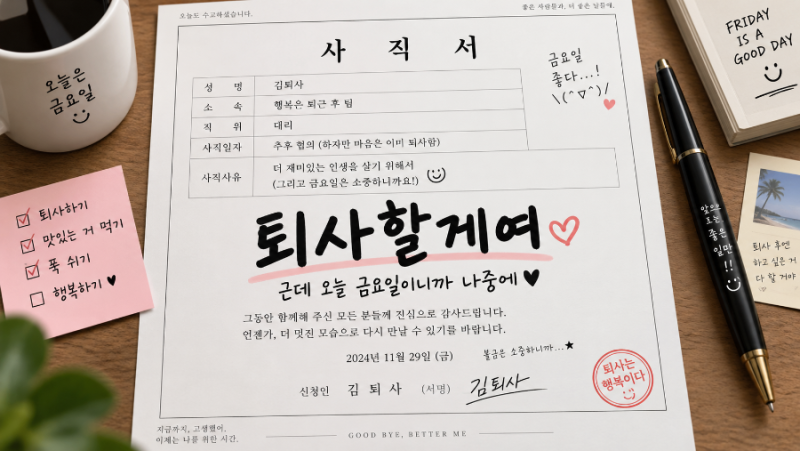 오늘도 수고하셨습니다.
좋은 사람들과, 더 좋은 날들에.
사 직 서
성 명 김퇴사
소 속 행복은 퇴근 후 팀
직 위 대리
사직일자 추후 협의 (하지만 마음은 이미 퇴사함)
사직사유 더 재미있는 인생을 살기 위해서
(그리고 금요일은 소중하니까요!)
금요일
좋다...!
\(^▽^)/
퇴사할게여
근데 오늘 금요일이니까 나중에 ♥
그동안 함께해 주신 모든 분들께 진심으로 감사드립니다.
언젠가, 더 멋진 모습으로 다시 만날 수 있기를 바랍니다.
2024년 11월 29일 (금)
불금은 소중하니까...★
신청인 김 퇴 사 (서명) 김퇴사
퇴사는
행복이다
지금까지, 고생했어.
이제는 나를 위한 시간.
GOOD BYE, BETTER ME
오늘은
금요일
퇴사하기
맛있는 거 먹기
푹 쉬기
행복하기 ♥
FRIDAY
IS A
GOOD DAY
앞으로
좋은
일만!!
퇴사 후엔
하고 싶은 거
다 할 거야